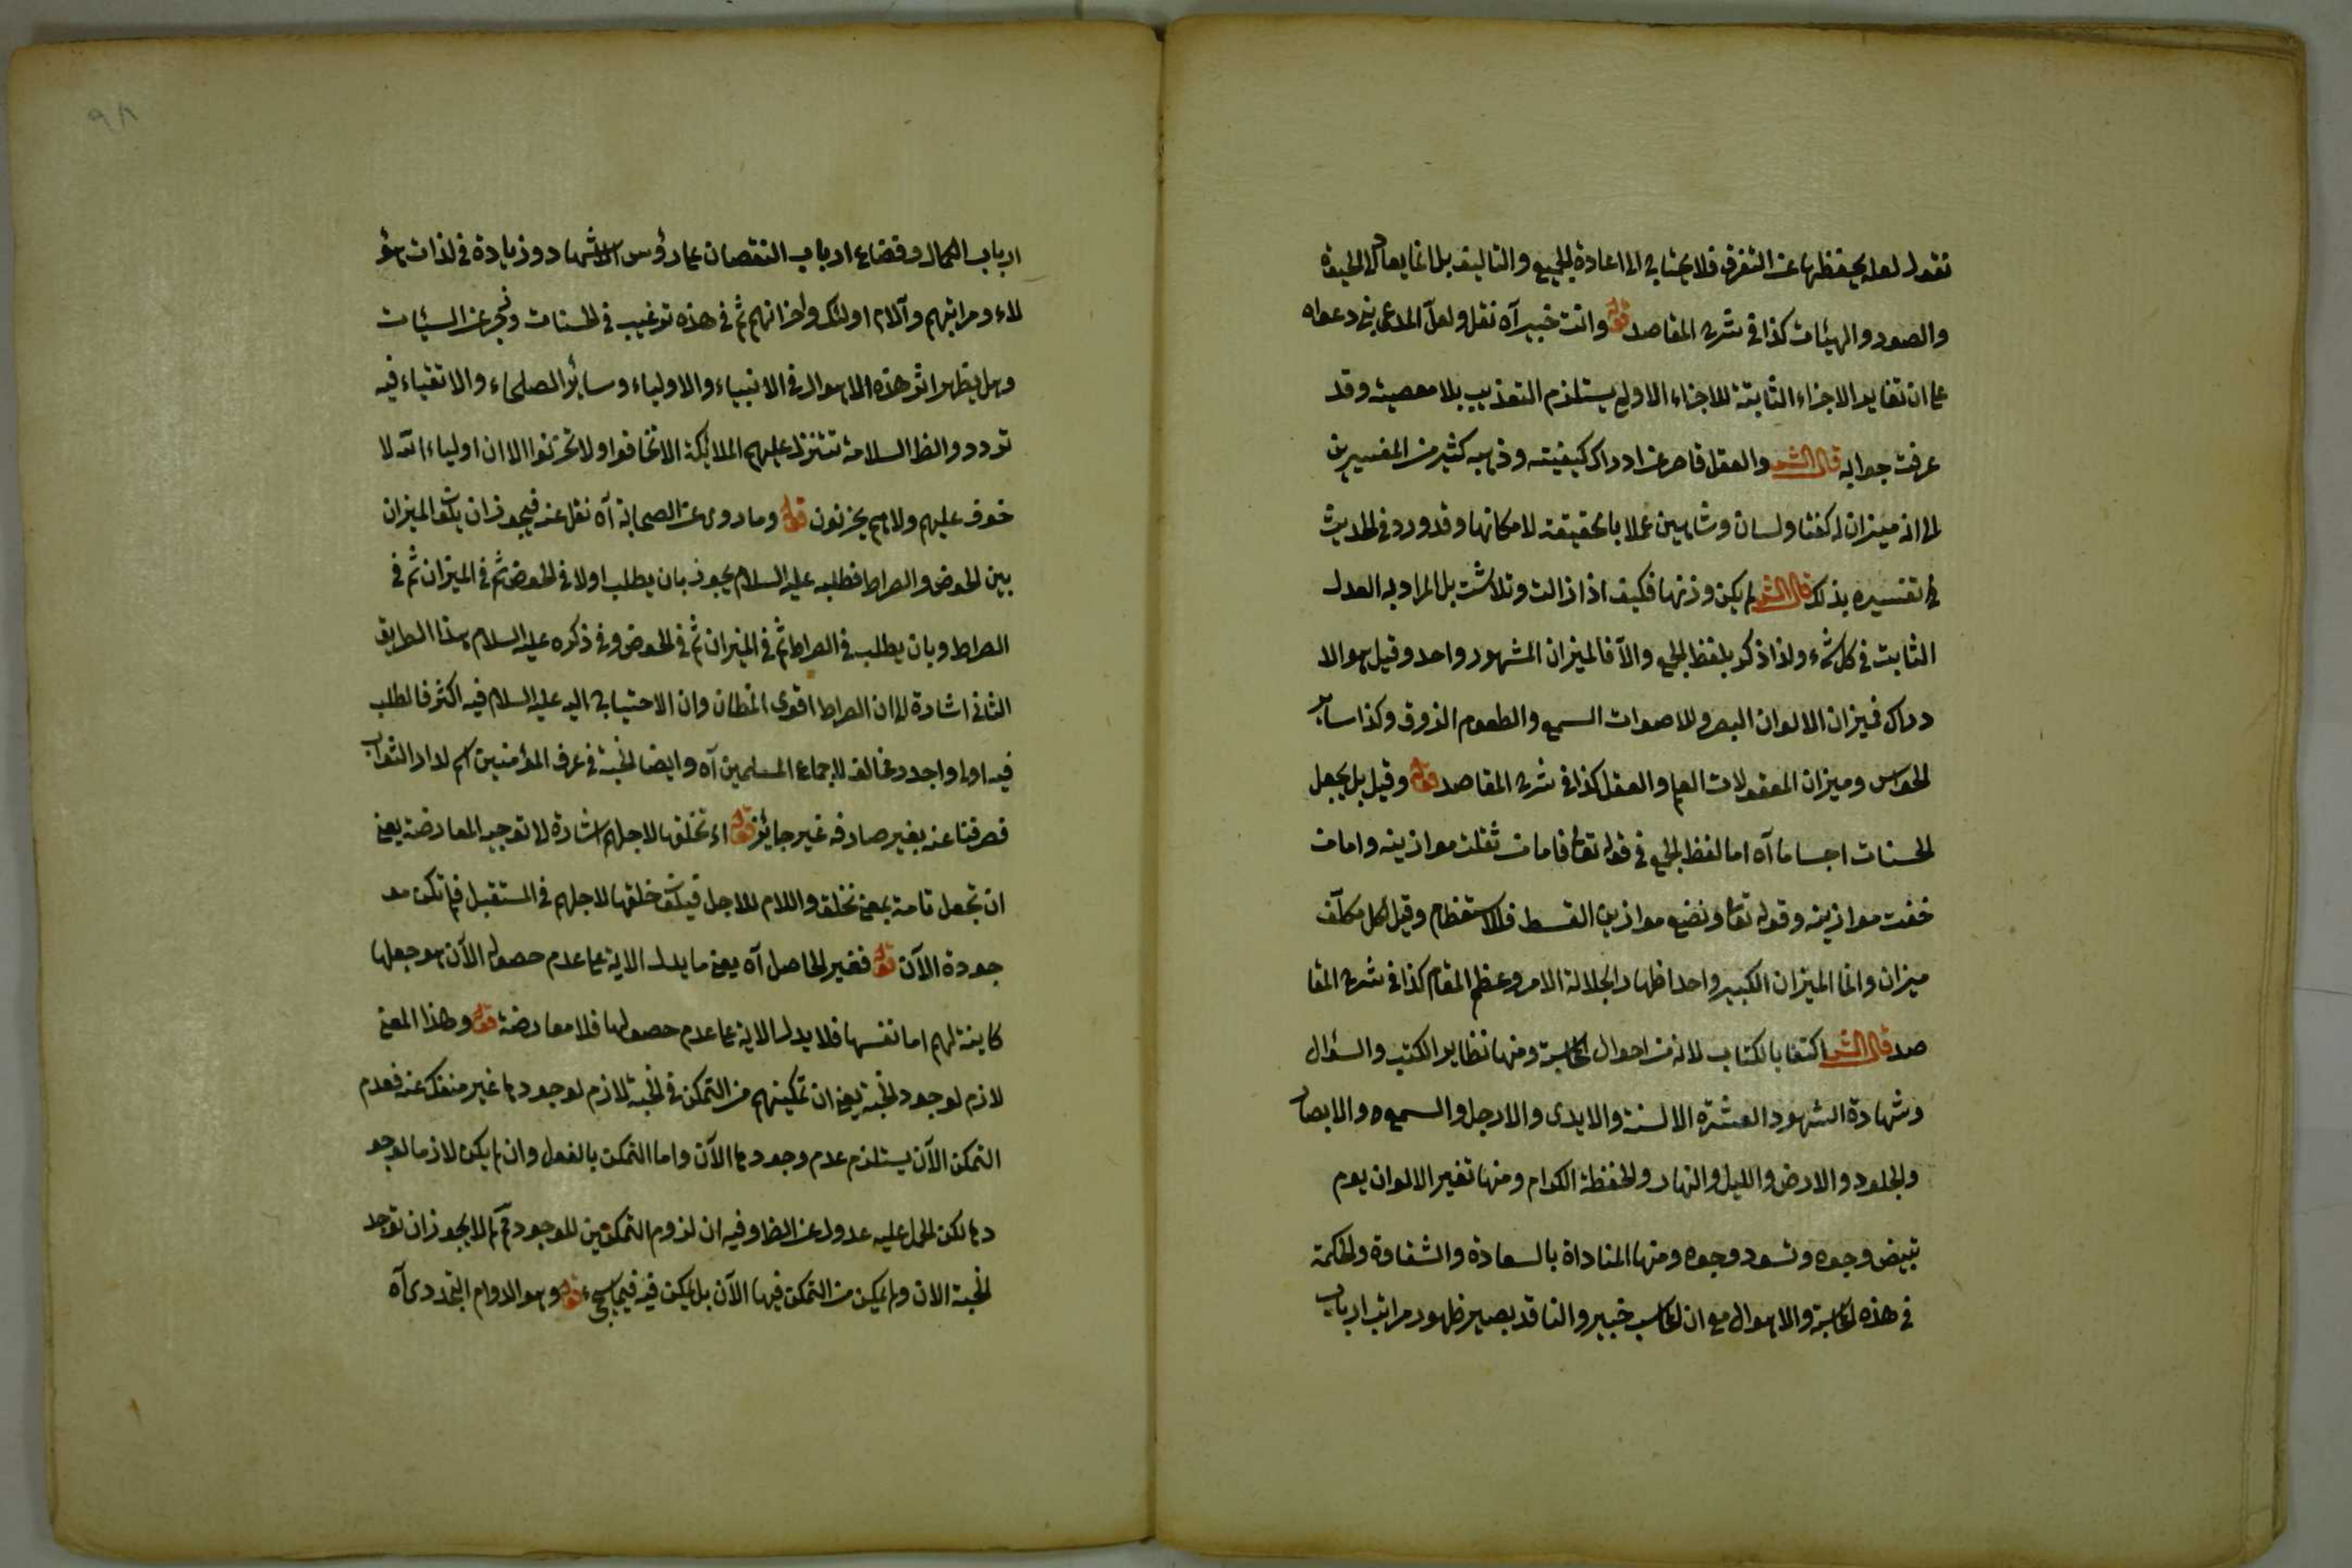 نقول لعله يحفظها عن التفرق فلا يحتاج الى اعادة الجمع والتاليف بل انما يعاد الى الحيوة
والصور والهيئات كذا فى شرح المقاصد قوله وانت خبير آه نقل ولعل المدعى بنى دعواه
على ان تغاير الاجزاء الثابتة للاجزاء الاولى يستلزم التعذيب بلا معصية وقد
عرفت جوابه قال الش والعقل قاصر عن ادراك كيفيته وذهب كثير من المفسرين
الى انه ميزان له كفتا ولسان وشاهين عملا بالحقيقة لامكانها وقد ورد فى الحديث
فى تفسيره بذلك قال الش لم يكن وزنها فكيف اذا زالت وتلاشت بل المراد به العدل
الثابت فى كل شىء ولذا ذكر بلفظ الجمع والا فالميزان المشهور واحد وقيل هو الا
دراك فميزان الالوان البصر وللاصوات السمع والطعوم الذوق وكذا سائر
الحواس وميزان المعقولات العلم والعقل كذا فى شرح المقاصد قوله وقيل بل يجعل
الحسنات اجساما آه اما لفظ الجمع فى قوله تعا فاما من ثقلت موازينه واما من
خفت موازينه وقوله تعا ونضع موازين القسط فللاستعظام وقيل لكل مكلف
ميزان وانما الميزان الكبير واحد اظهارا لجلالة الامر وعظم المقام كذا فى شرح المقا
صد قال الش اكتفا بالكتاب لانه من احوال المحاسبة ومنها تظاير الكتب والسؤال
وشهادة الشهود العشرة الالسنة والايدى والارجل والسمع والابصار
والجلود والارض والليل والنهار والحفظة الكرام ومنها تغير الالوان يوم
تبيض وجوه وتسود وجوه ومنها المناداة بالسعادة والشقاوة والحكمة
فى هذه المحاسبة والاهوال مع ان المحاسب خبير والناقد بصير ظهور مراتب ارباب
٩٨
ارباب الكمال وفضايح ارباب النقصان على رؤس الاشهاد وزيادة فى لذات هؤ
لاء ومراتبهم وآلام اولئك واحزانهم ثم فى هذه ترغيب فى الحسنات وزجر عن السيئات
وهل يظهر اثر هذه الاهوال فى الانبياء والاولياء وسائر الصلحاء والاتقياء فيه
تردد والظ السلامة تتنزل عليهم الملائكة الا تخافوا ولا تحزنوا الا ان اولياء الله لا
خوف عليهم ولاهم يحزنون قوله وما روى عن الصحابة آه نقل عنه فيجوز ان يكون الميزان
بين الحوض والصراط فطلبه عليه السلام يجوز بان يطلب اولا فى الحوض ثم فى الميزان ثم فى
الصراط وبان يطلب فى الصراط ثم فى الميزان ثم فى الحوض وفى ذكره عليه السلام هذا الطريق
الثانى اشارة الى ان الصراط اقوى المظان وان الاحتياج اليه عليه السلام فيه اكثر فالطلب
فيه اولى واجدر ومخالف لاجماع المسلمين آه وايضا الجنة فى عرف المؤمنين اسم لدار الثواب
فصرفنا عنه بغير صارف غير جائز قوله اى نخلقها لاجلهم اشارة لا توجيه المعارضة يعنى
ان تجعل تامة بمعنى نخلق واللام للاجل فيكون خلقها لاجلهم فى المستقبل فلم تكن مو
جودة الآن قوله فغير الحاصل آه يعنى ما يدل الاية على عدم حصوله الآن هو جعلها
كاينة لهم اما نفسها فلا يدل الاية على عدم حصولها فلا معارضة قوله وهذا المعنى
لازم لوجود الجنة يعنى ان تمكينهم من التمكن فى الجنة لازم لوجودها غير منفك عنه فعدم
التمكن الآن يستلزم عدم وجودها الآن واما التمكن بالفعل وان لم يكن لازما لوجو
دها لكن الحمل عليه عدول عن الظ وفيه ان لزوم التمكين للوجود مم لم لا يجوز ان توجد
الجنة الان ولم يمكن من التمكن فيها الآن بل يمكن فيه فيما سيجىء قوله وهو الدوام التجددى آه